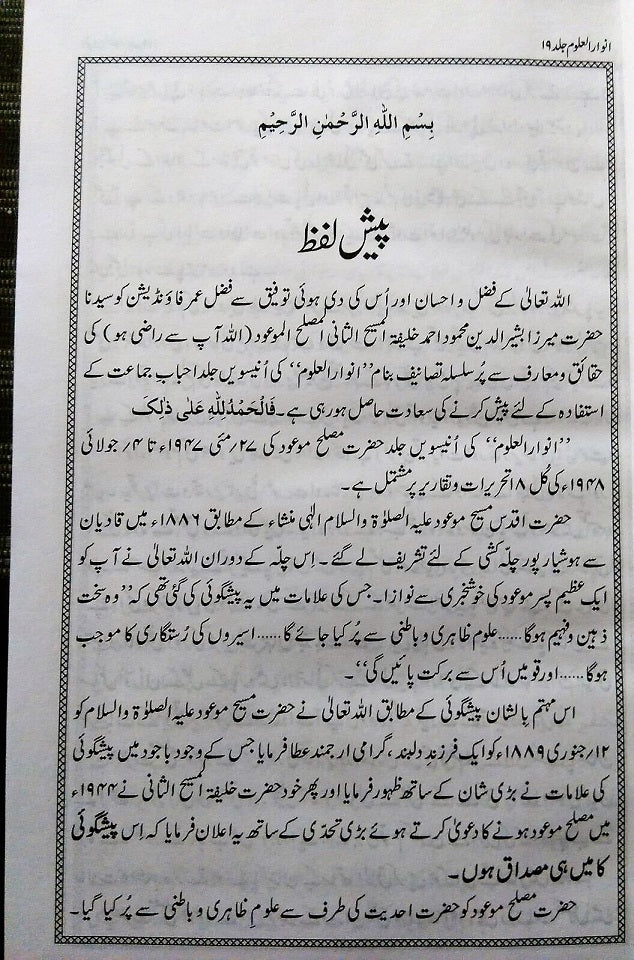 انوار العلوم جلد ۱۹
بِسْمِ اللهِ الرَّحْمٰنِ الرَّحِيْمِ
پیش لفظ
اللہ تعالیٰ کے فضل و احسان اور اُس کی دی ہوئی توفیق سے فضل عمر فاؤنڈیشن کو سیدنا
حضرت میرزا بشیر الدین محمود احمد خلیفۃ المسیح الثانی المصلح الموعود (اللہ آپ سے راضی ہو) کی
حقائق ومعارف سے پُر سلسلہ تصانیف بنام ’’انوار العلوم‘‘ کی اُنیسویں جلد احبابِ جماعت کے
استفادہ کے لئے پیش کرنے کی سعادت حاصل ہورہی ہے۔ فَالْحَمْدُلِلّٰهِ عَلٰى ذٰلِکَ
’’انوار العلوم‘‘ کی اُنیسویں جلد حضرت مصلح موعود کی ۲۷؍مئی ۱۹۴۷ء تا ۴؍ جولائی
۱۹۴۸ء کی کُل ۱۸ تحریرات و تقاریر پر مشتمل ہے۔
حضرت اقدس مسیح موعود علیہ الصلوٰۃ والسلام الٰہی منشاء کے مطابق ۱۸۸۶ء میں قادیان
سے ہوشیار پور چلّہ کشی کے لئے تشریف لے گئے۔ اِس چلّہ کے دوران اللہ تعالیٰ نے آپ کو
ایک عظیم پسر موعود کی خوشخبری سے نوازا۔ جس کی علامات میں یہ پیشگوئی کی گئی تھی کہ ’’وہ سخت
ذہین وفہیم ہوگا......علوم ظاہری و باطنی سے پُر کیا جائے گا......اسیروں کی رُستگاری کا موجب
ہوگا......اور قومیں اُس سے برکت پائیں گی‘‘۔
اس مہتم بالشان پیشگوئی کے مطابق اللہ تعالیٰ نے حضرت مسیح موعود علیہ الصلوٰۃ والسلام کو
۱۲؍جنوری ۱۸۸۹ء کو ایک فرزند دلبند، گرامی ارجمند عطا فرمایا جس کے وجود باجود میں پیشگوئی
کی علامات نے بڑی شان کے ساتھ ظہور فرمایا اور پھر خود حضرت خلیفۃ المسیح الثانی نے ۱۹۴۴ء
میں مصلح موعود ہونے کا دعویٰ کرتے ہوئے بڑی تحدّی کے ساتھ یہ اعلان فرمایا کہ اِس پیشگوئی
کا میں ہی مصداق ہوں۔
حضرت مصلح موعود کو حضرت احدیت کی طرف سے علومِ ظاہری و باطنی سے پُر کیا گیا۔